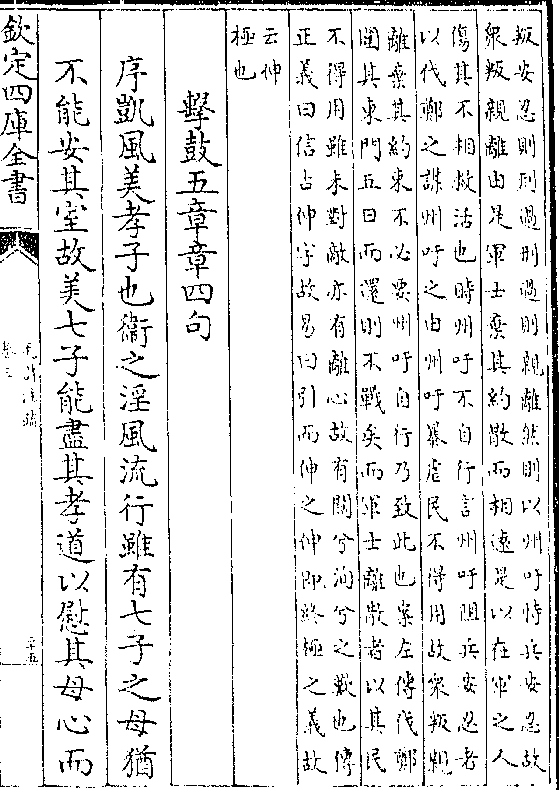 叛安忍則刑過刑過則親離然則以州吁恃兵安忍故
衆叛親離由是軍士棄其約散而相遠是以在軍之人
傷其不相救活也時州吁不自行言州吁阻兵安忍者
以伐鄭之謀州吁之由州吁暴虐民不得用故衆叛親
離棄其約束不必要州吁自行乃致此也案左傳伐鄭
圍其東門五日而還則不戰矣而軍士離散者以其民
不得用雖未對敵亦有離心故有闊兮洵兮之歎也傳
正義曰信古伸字故易曰引而伸之伸即終極之義故
云伸
極也
擊鼓五章章四句
序凱風美孝子也衞之淫風流行雖有七子之母猶
不能安其室故美七子能盡其孝道以慰其母心而
欽定四庫全書
毛詩注疏
卷三
三十五